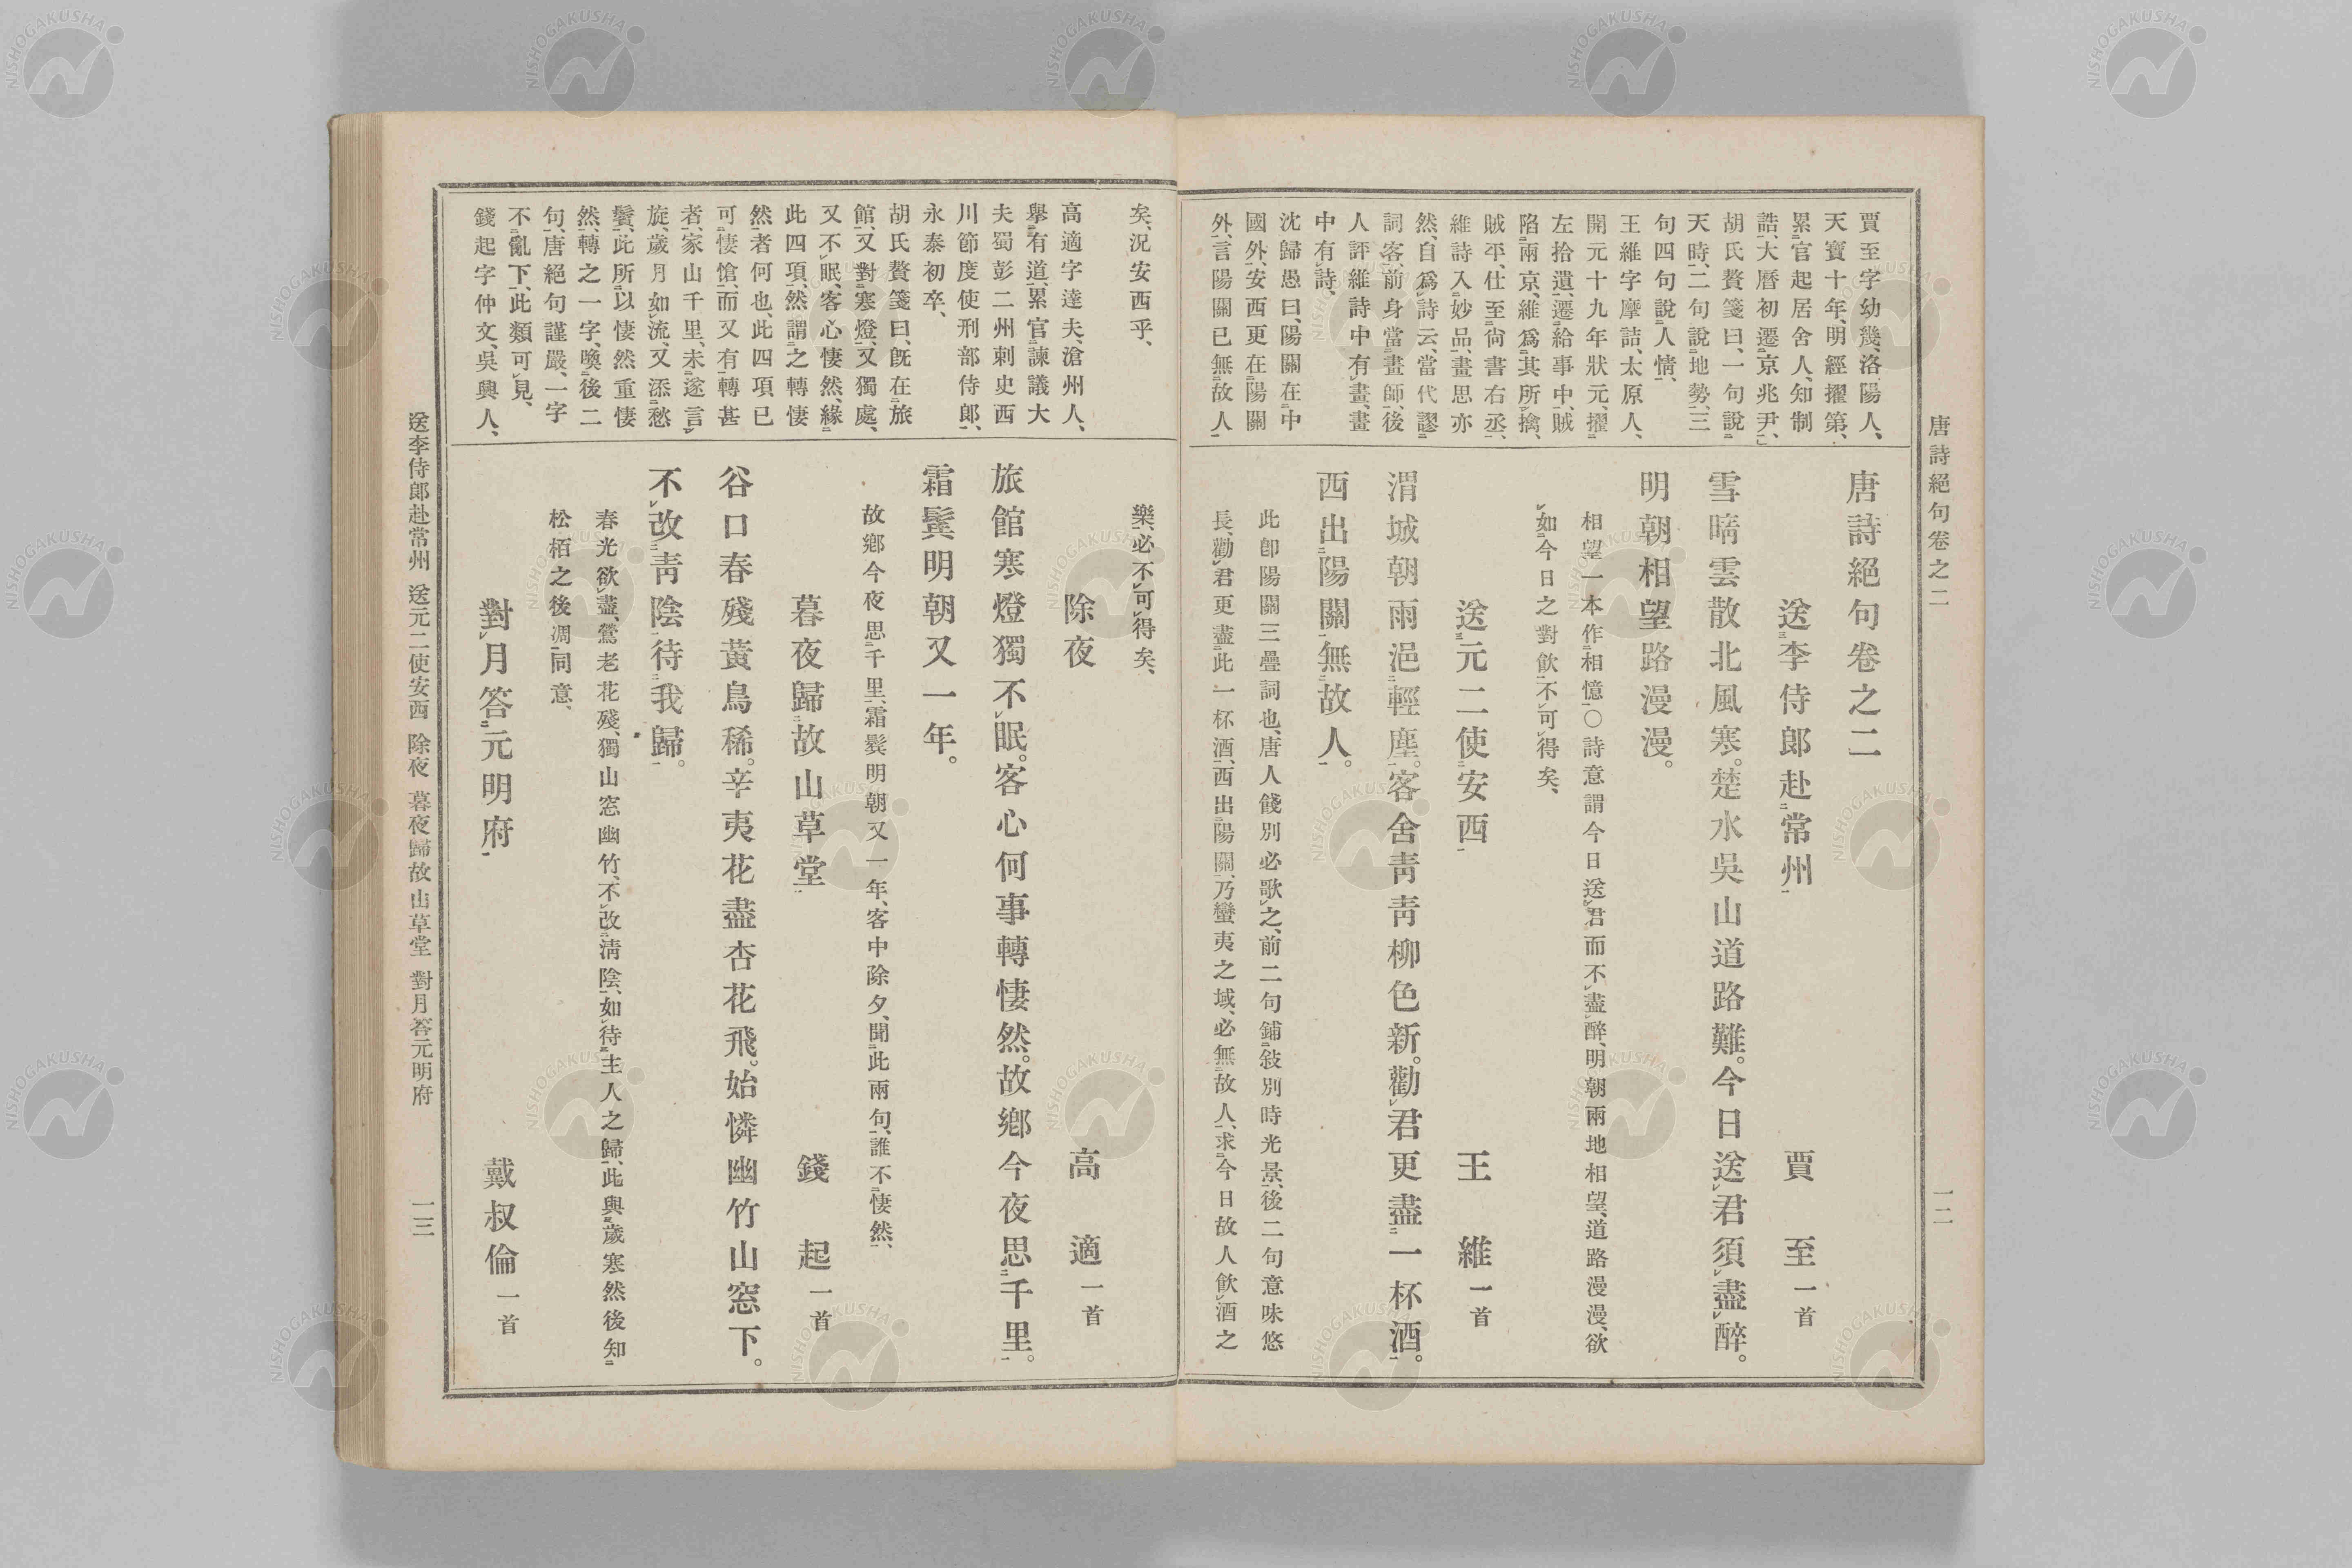 唐詩絕句卷之二
一二
賈至字幼幾、洛陽人、
天寶十年、明經擢第、
累官起居舍人、知制
誥、大曆初遷京兆尹、
胡氏贅箋曰、一句說
天時、二句說地勢、三
句四句說人情、
王維字摩詰、太原人、
開元十九年狀元、擢
左拾遺、遷給事中、賊
陷兩京、維爲其所擒、
賊平、仕至尙書右丞、
維詩入妙品、畫思亦
然、自爲詩云、當代謬
詞客、前身當畫師、後
人評維詩中有畫、畫
中有詩、
沈歸愚曰、陽關在中
國外、安西更在陽關
外、言陽關已無故人
唐詩絕句卷之二
送李侍郞赴常州
賈至一首
雪晴雲散北風寒。楚水吳山道路難。今日送君須盡醉。
明朝相望路漫漫。
相望一本作相憶○詩意謂今日送君而不盡醉、明朝兩地相望、道路漫漫、欲
如今日之對飮、不可得矣、
送元二使安西
王維一首
渭城朝雨浥輕塵。客舍靑靑柳色新。勸君更盡一杯酒。
西出陽關無故人。
此卽陽關三疊詞也、唐人餞別必歌之、前二句鋪敍別時光景、後二句意味悠
長、勸君更盡此一杯酒、西出陽關、乃蠻夷之域、必無故人、求今日故人飮酒之
矣、況安西乎、
高適字達夫、滄州人、
擧有道、累官諫議大
夫蜀彭二州刺史西
川節度使刑部侍郞、
永泰初卒、
胡氏贅箋曰、旣在旅
館、又對寒燈、又獨處、
又不眠、客心悽然、緣
此四項、然謂之轉悽
然者何也、此四項已
可悽愴、而又有轉甚
者、家山千里、未遂言
旋、歲月如流、又添愁
鬢、此所以悽然重悽
然、轉之一字、喚後二
句、唐絕句謹嚴、一字
不亂下、此類可見、
錢起字仲文、吳興人、
樂、必不可得矣、
除夜
高適一首
旅館寒燈獨不眠。客心何事轉悽然。故鄕今夜思千里。
霜鬂明朝又一年。
故鄕今夜思千里、霜鬂明朝又一年、客中除夕、聞此兩句、誰不悽然、
暮夜歸故山草堂
錢起一首
谷口春殘黃鳥稀。辛夷花盡杏花飛。始憐幽竹山窓下。
不改靑陰待我歸。
春光欲盡、鶯老花殘、獨山窓幽竹、不改淸陰、如待主人之歸、此與歲寒然後知
松栢之後凋同意、
對月答元明府
戴叔倫一首
送李侍郞赴常州 送元二使安西 除夜 暮夜歸故山草堂 對月答元明府
一三
NISHOGAKUSHA